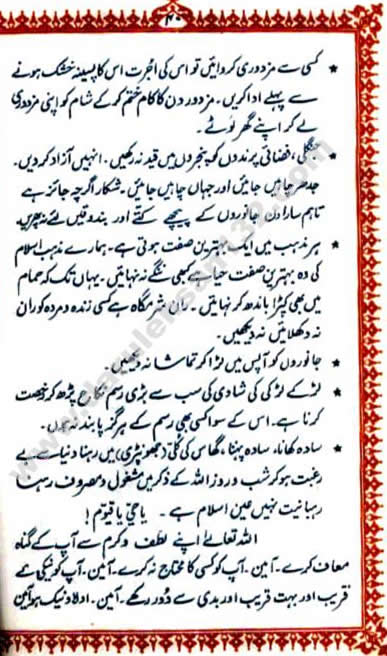 ۴۰
★ کسی سے مزدوری کروائیں تو اس کی اجرت اس کا پسینہ خشک ہونے
سے پہلے ادا کریں۔ مزدور دن کا کام ختم کر کے شام کو اپنی مزدوری
لے کر اپنے گھر لوٹے۔
★ جنگلی، فضائی پرندوں کو پنجروں میں قید نہ رکھیں۔ انہیں آزاد کر دیں۔
جدھر چاہیں جائیں اور جہاں چاہیں جائیں۔ شکار اگرچہ جائز ہے
تاہم سارا دن جانوروں کے پیچھے کتے اور بندوقیں لئے نہ پھریں۔
★ ہر مذہب میں ایک بہترین صفت ہوتی ہے۔ ہمارے مذہب اسلام
کی وہ بہترین صفت حیا ہے کبھی ننگے نہ نہائیں۔ یہاں تک کہ حمام
میں بھی کپڑا باندھ کر نہائیں۔ ران شرمگاہ ہے کسی زندہ و مردہ کو ران
نہ دکھلائیں نہ دیکھیں۔
★ جانوروں کو آپس میں لڑا کر تماشا نہ دیکھیں۔
★ لڑکے لڑکی کی شادی کی سب سے بڑی رسم نکاح پڑھ کر رخصت
کرنا ہے۔ اس کے سوا کسی بھی رسم کے ہرگز پابند نہ ہوں۔
★ سادہ کھانا، سادہ پہننا، گھاس کی کُلّی (جھونپڑی) میں رہنا دنیا سے بے
رغبت ہو کر شب و روز اللہ کے ذکر میں مشغول و مصروف رہنا
رہبانیت نہیں عین اسلام ہے۔ یا حیّ یا قیّوم!
اللہ تعالےٰ اپنے لطف و کرم سے آپ کے گناہ
معاف کرے۔ آمین۔ آپ کو کسی کا محتاج نہ کرے۔ آمین۔ آپ کو نیکی کے
قریب اور بہت قریب اور بدی سے دور رکھے۔ آمین۔ اولاد نیک ہو آمین